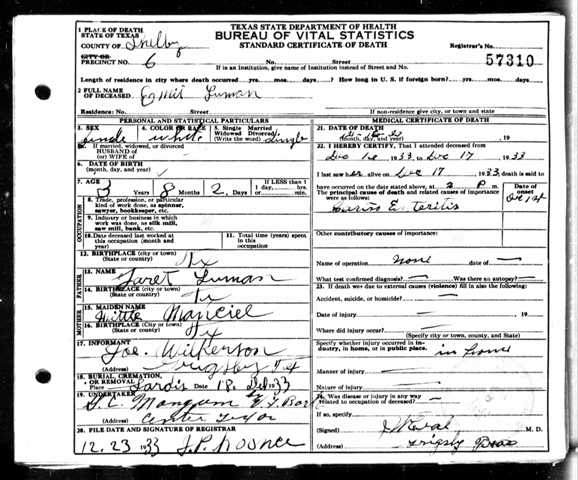 TEXAS STATE DEPARTMENT OF HEALTH
BUREAU OF VITAL STATISTICS
STANDARD CERTIFICATE OF DEATH
1 PLACE OF DEATH
STATE OF TEXAS
COUNTY OF Shelby
Registrar's No.
CITY OR
PRECINCT NO. 6 No. Street 57310
If in an Institution, give name of Institution instead of Street and No.
Length of residence in city where death occurred yrs. mos. days. How long in U. S. if foreign born? yrs. mos. days.
2 FULL NAME
OF DECEASED Luman
Residence: No. Street City
If non-residence give city, or town and state
PERSONAL AND STATISTICAL PARTICULARS
3. SEX 4. COLOR OR RACE white 5. Single Married Widowed Divorced (Write the word) single
5a. If married, widowed, or divorced
HUSBAND OF
(or) WIFE OF
6. DATE OF BIRTH
(month, day, and year)
7. AGE 3 Years 8 Months 2 Days IF LESS than 1 day hrs. min.
OCCUPATION
8. Trade, profession, or particular kind of work done, as spinner, sawyer, bookkeeper, etc.
9. Industry or business in which work was done, as silk mill, saw mill, bank, etc.
10. Date deceased last worked at this occupation (month and year)
11. Total time (years) spent in this occupation
12. BIRTHPLACE (city or town)
(State or country) Tx
FATHER
13. NAME Luman
14. BIRTHPLACE (city or town)
(State or country) Tx
MOTHER
15. MAIDEN NAME
16. BIRTHPLACE (city or town)
(State or country) Tx
17. INFORMANT Joe. Wilkerson
(Address) Tex
18. BURIAL, CREMATION, OR REMOVAL
Place Sardis Date 18 Dec 1933
19. UNDERTAKER Mangum
(Address) Center Texas
20. FILE DATE AND SIGNATURE OF REGISTRAR
12.23 1933
MEDICAL CERTIFICATE OF DEATH
21. DATE OF DEATH
(month, day, and year) 19
22. I HEREBY CERTIFY, That I attended deceased
from Dec 1933 to Dec 17 1933
I last saw her alive on Dec 17 1933 death is said to
have occurred on the date stated above, at 2 P. m.
The principal cause of death and related causes of importance were as follows:
Date of onset
Other contributory causes of importance:
Name of operation None date of
What test confirmed diagnosis? Was there an autopsy?
23. If death was due to external causes (violence) fill in also the following:
Accident, suicide, or homicide?
Date of injury 19
Where did injury occur?
(Specify city or town, county, and State)
Specify whether injury occurred in industry, in home, or in public place.
in home
Manner of injury
Nature of injury
24. Was disease or injury in any way related to occupation of deceased?
If so, specify
(Signed) M. D.
(Address)